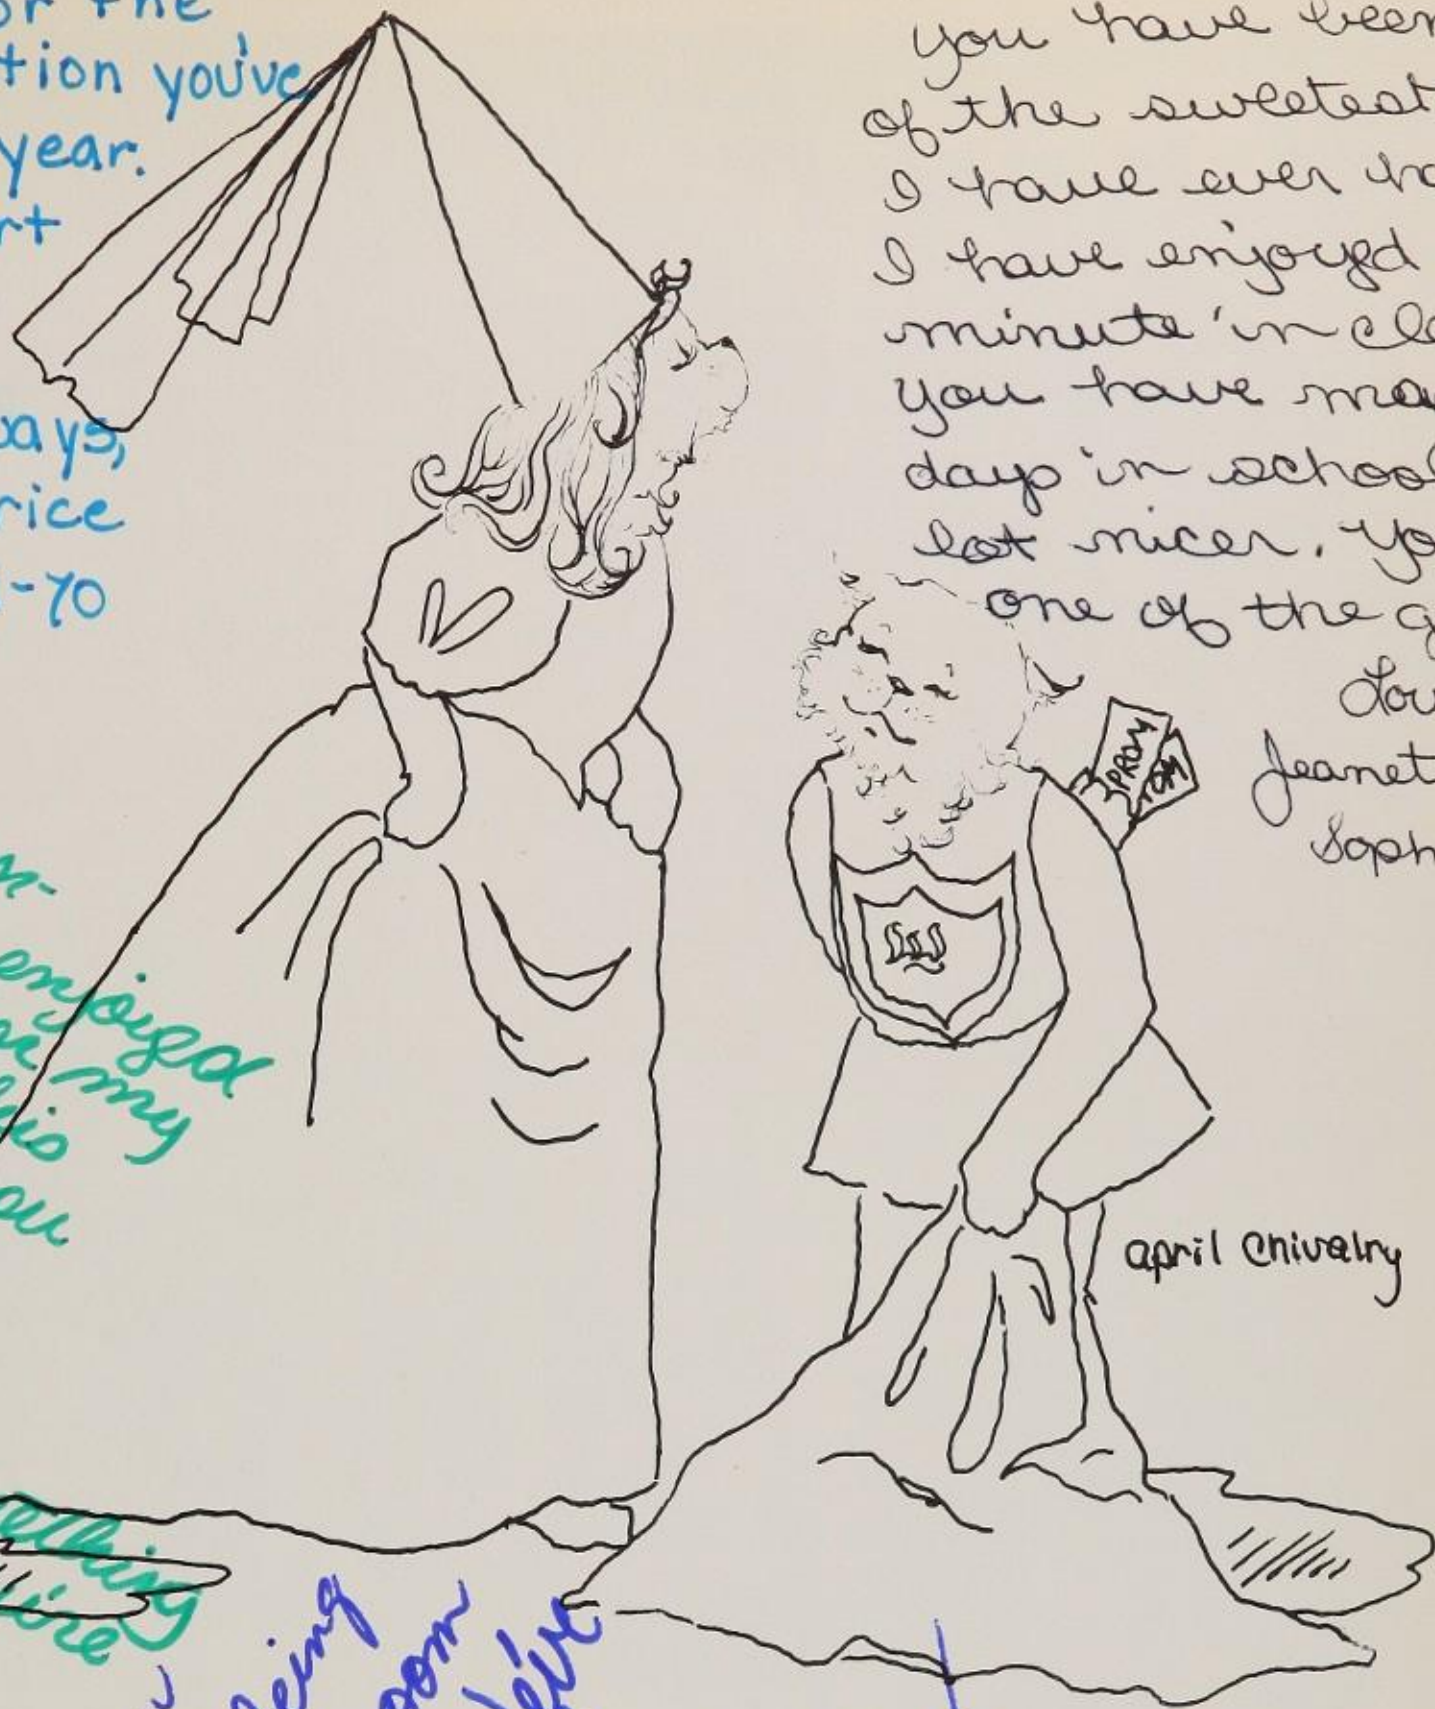 or the
tion you've
year.
rt
ays,
rice
-70
you have been
of the sweetest
I have ever ha
I have enjoyed
minute in cla
you have ma
days in school
lot nicer. Yo
one of the g
Lov
Jeanet
Soph
PROM
april chivalry
enjoyed
my
his
ou
elking
ire
being
oom